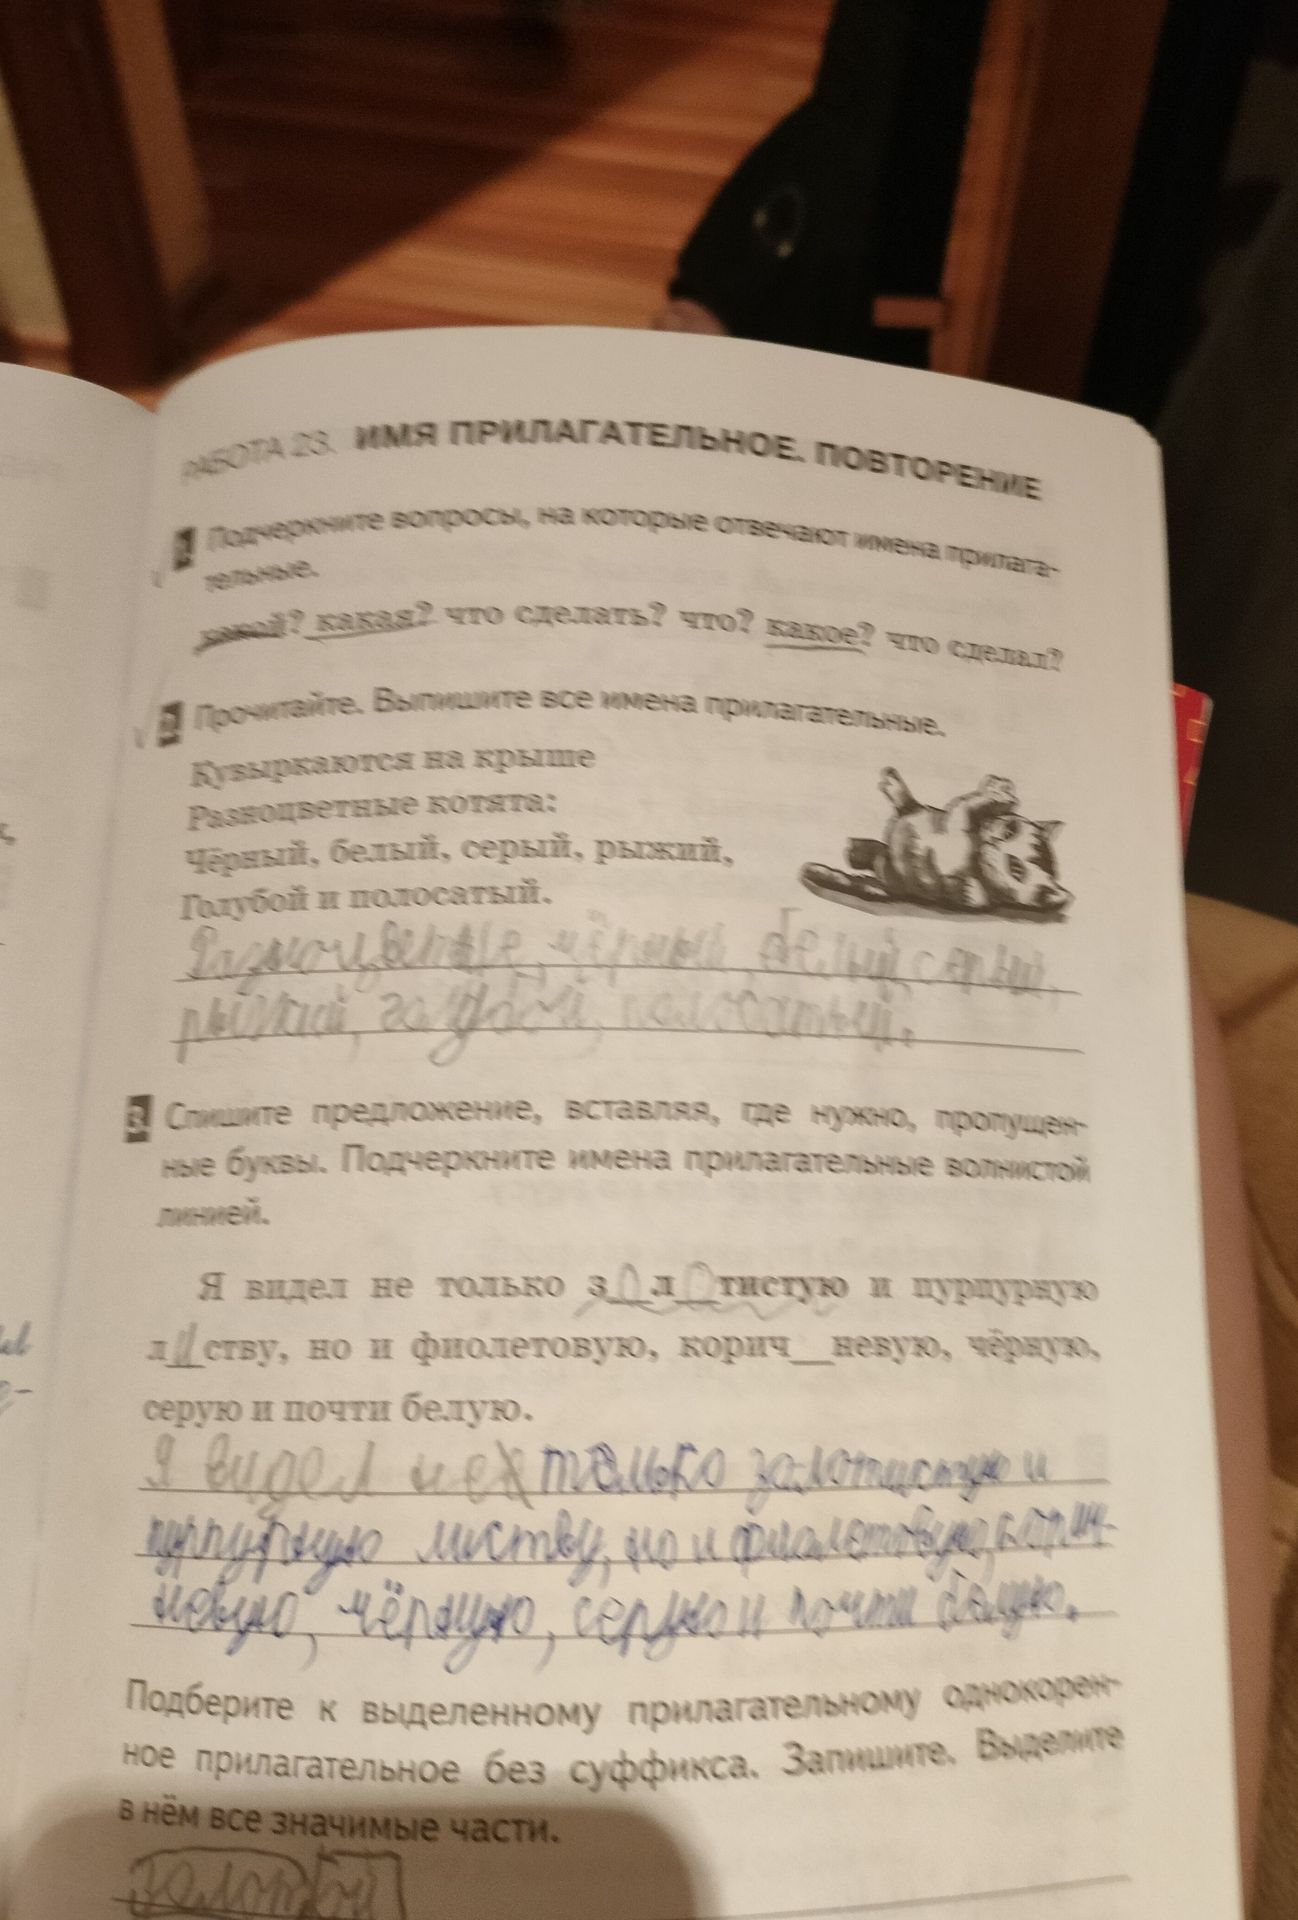 РАБОТА 23. ИМЯ ПРИЛАГАТЕЛЬНОЕ. ПОВТОРЕНИЕ
1 Подчеркните вопросы, на которые отвечают имена прилага-
тельные.
какой? какая? что сделать? что? какое? что сделал?
2 Прочитайте. Выпишите все имена прилагательные.
Кувыркаются на крыше
Разноцветные котята:
Чёрный, белый, серый, рыжий,
Голубой и полосатый.
Разноцветные, чёрный, белый, серый,
рыжий, голубой, полосатый.
3 Спишите предложение, вставляя, где нужно, пропущен-
ные буквы. Подчеркните имена прилагательные волнистой
линией.
Я видел не только з_о_л_о_тистую и пурпурную
л_и_ству, но и фиолетовую, корич__невую, чёрную,
серую и почти белую.
Я видел не только золотистую и
пурпурную листву, но и фиолетовую, корич-
невую, чёрную, серую и почти белую.
Подберите к выделенному прилагательному однокорен-
ное прилагательное без суффикса. Запишите. Выделите
в нём все значимые части.
золотой